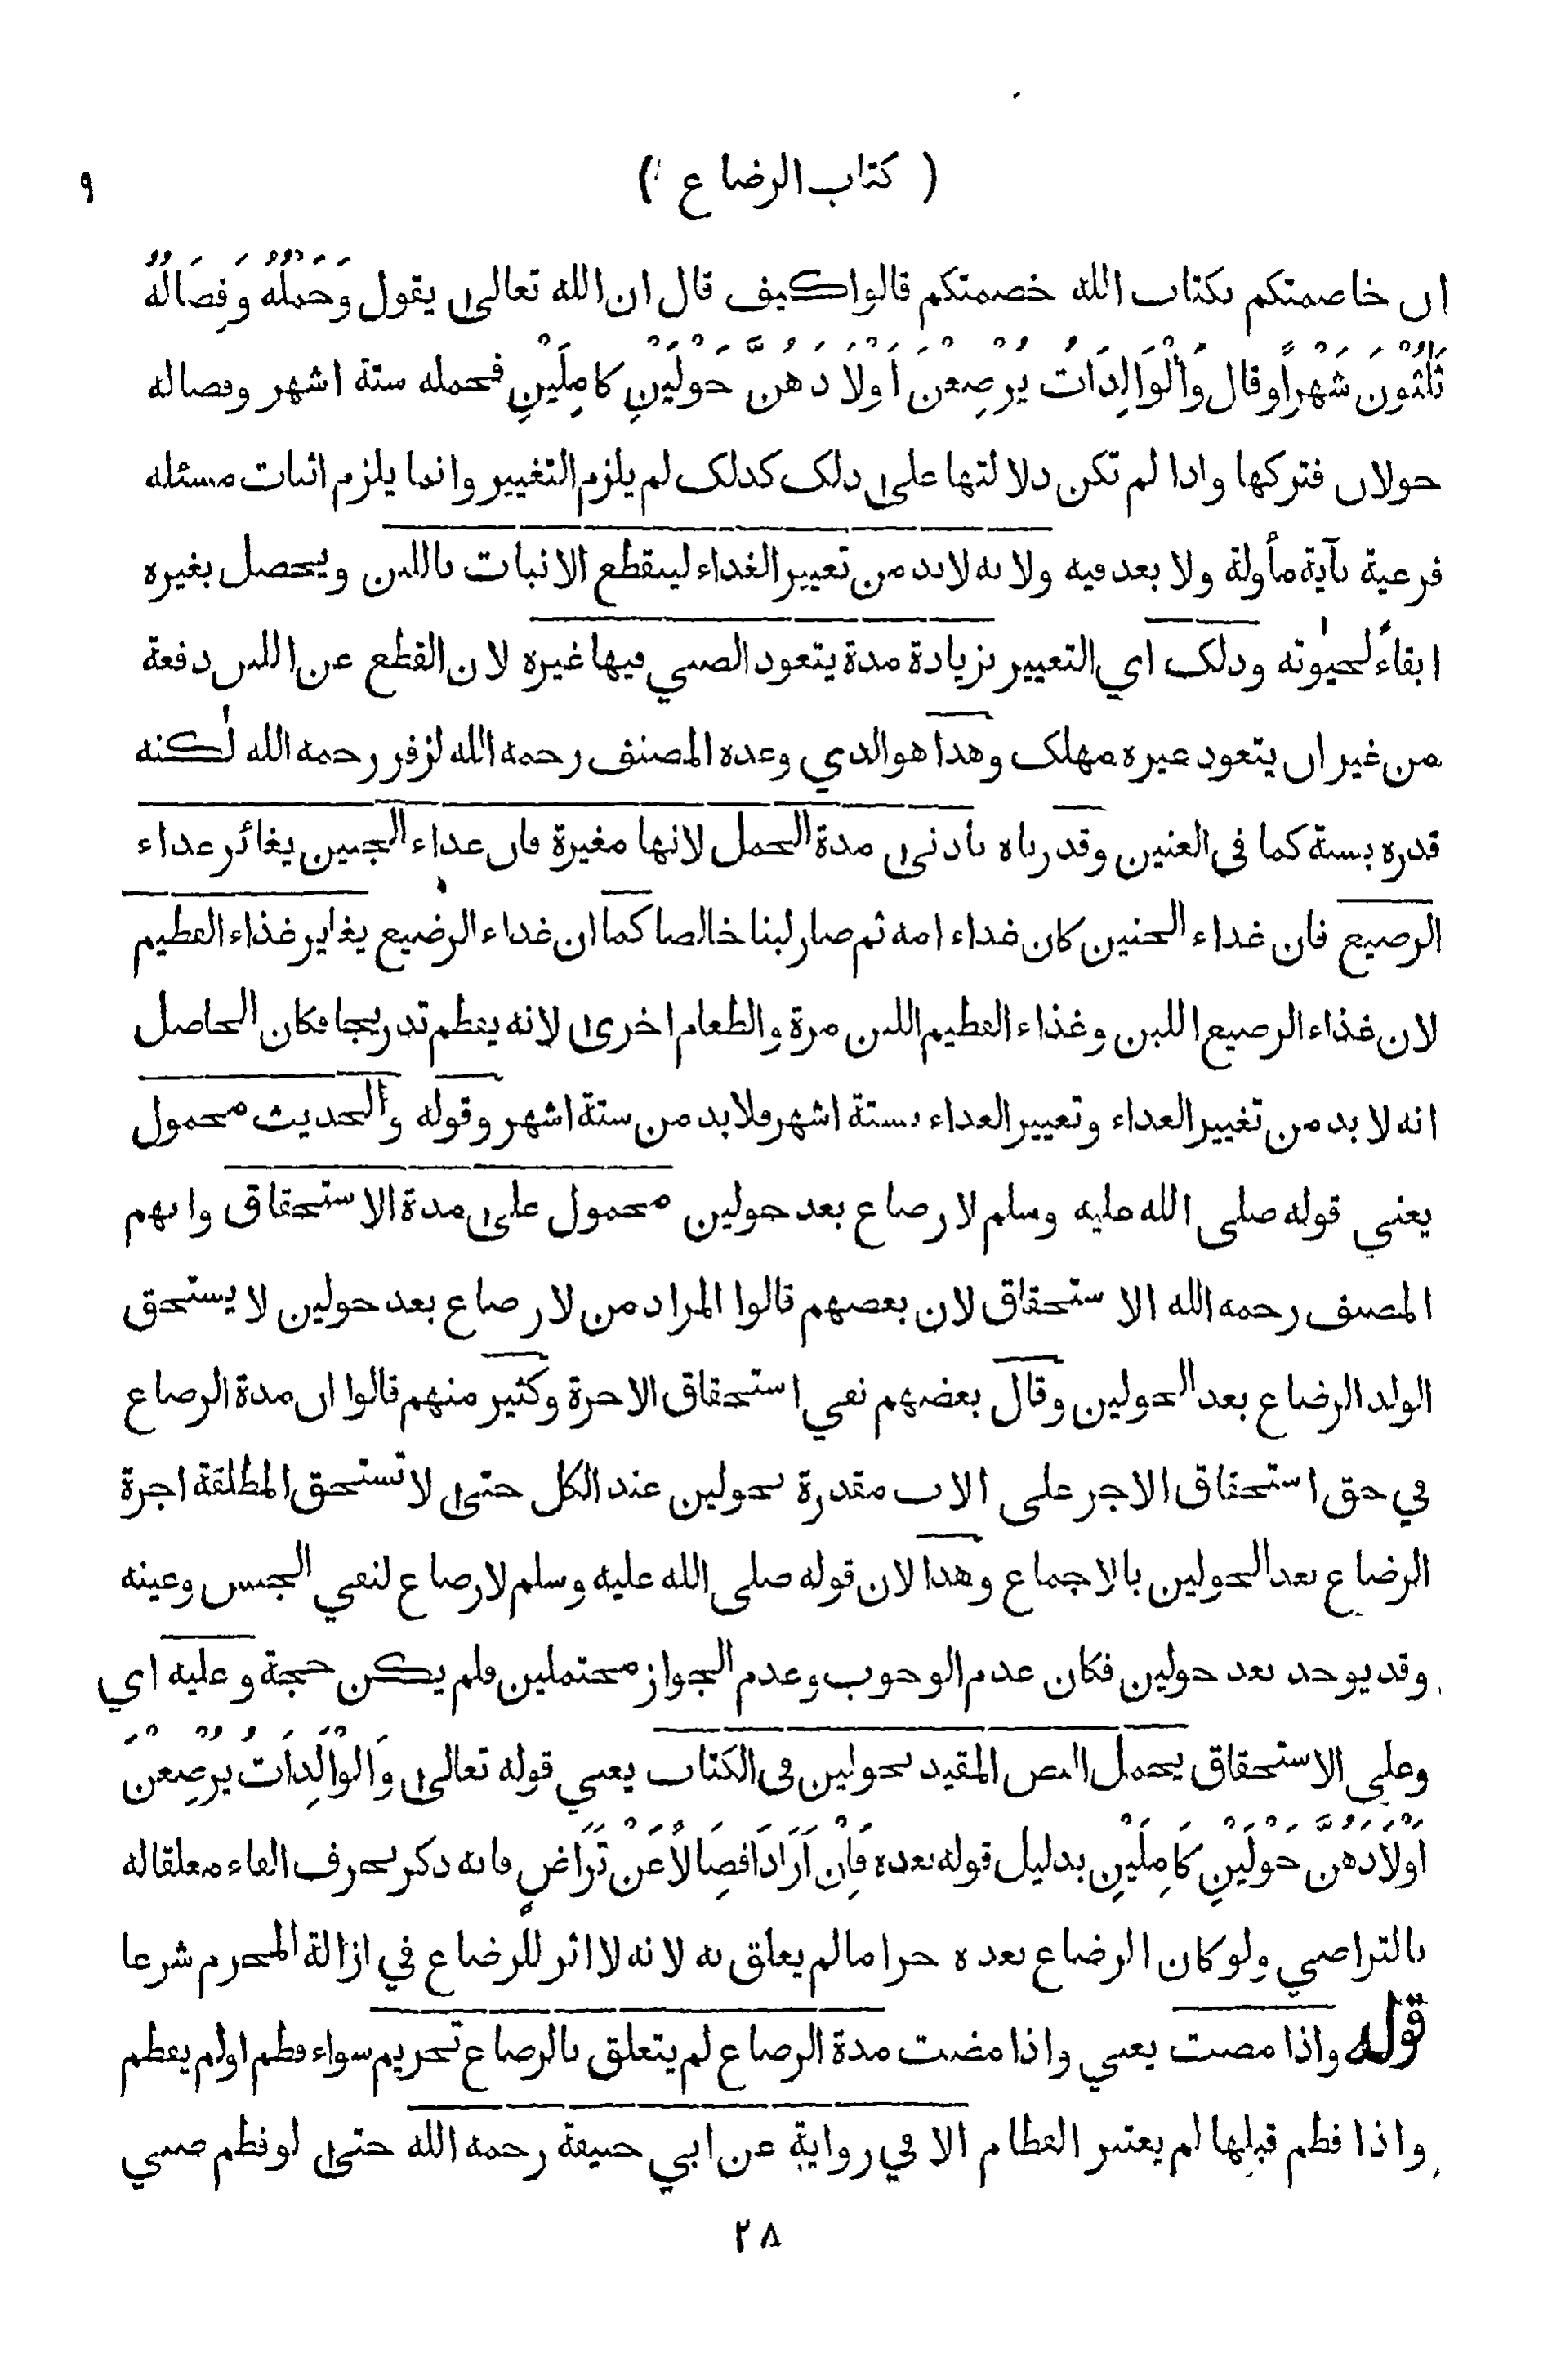 ( كتاب الرضاع ) ٩
ان خاصمتكم بكتاب الله خصمتكم قالوا كيف قال ان الله تعالى يقول وَحَمْلُهُ وَفِصَالُهُ
ثَلٰثُوْنَ شَهْرًا وقال وَالْوَالِدَاتُ يُرْضِعْنَ اَوْلَادَهُنَّ حَوْلَيْنِ كَامِلَيْنِ فحمله ستة اشهر وفصاله
حولان فتركها واذا لم تكن دلالتها على ذلك كذلك لم يلزم التغيير وانما يلزم اثبات مسئله
فرعية بآية مأولة ولا بعد فيه ولانه لابد من تغيير الغداء لينقطع الانبات باللبن ويحصل بغيره
ابقاءً لحيٰوته وذلك اي التغيير بزيادة مدة يتعود الصبي فيها غيره لان القطع عن اللبن دفعة
من غير ان يتعود غيره مهلك وهذا هو الذي وعده المصنف رحمه الله لزفر رحمه الله لٰكنه
قدره بسنة كما في العنين وقدرناه بادنى مدة الحمل لانها مغيرة فان غداء الجنين يغائر غداء
الرضيع فان غداء الجنين كان غداء امه ثم صار لبنا خالصا كما ان غداء الرضيع يغاير غذاء الفطيم
لان غذاء الرضيع اللبن وغذاء الفطيم اللبن مرة والطعام اخرى لانه يفطم تدريجا فكان الحاصل
انه لا بد من تغيير الغداء وتغيير الغداء بستة اشهر فلابد من ستة اشهر وقوله والحديث محمول
يعني قوله صلى الله عليه وسلم لا رضاع بعد حولين محمول على مدة الاستحقاق وابهم
المصنف رحمه الله الاستحقاق لان بعضهم قالوا المراد من لا رضاع بعد حولين لا يستحق
الولد الرضاع بعد الحولين وقال بعضهم نفي استحقاق الاجرة وكثير منهم قالوا ان مدة الرضاع
في حق استحقاق الاجر على الاب مقدرة بحولين عند الكل حتى لا تستحق المطلقة اجرة
الرضاع بعد الحولين بالاجماع وهذا لان قوله صلى الله عليه وسلم لا رضاع لنفي الجنس وعينه
وقد يوجد بعد حولين فكان عدم الوجوب وعدم الجواز محتملين فلم يكن حجة وعليه اي
وعلى الاستحقاق يحمل النص المقيد بحولين في الكتاب يعني قوله تعالى وَالْوَالِدَاتُ يُرْضِعْنَ
اَوْلَادَهُنَّ حَوْلَيْنِ كَامِلَيْنِ بدليل قوله بعده فَاِنْ اَرَادَا فِصَالًا عَنْ تَرَاضٍ فانه ذكر بحرف الفاء معلقا له
بالتراضي ولو كان الرضاع بعده حراما لم يعلق به لانه لا اثر للرضاع في ازالة المحرم شرعا
قوله واذا مضت يعني واذا مضت مدة الرضاع لم يتعلق بالرضاع تحريم سواء فطم اولم يفطم
واذا فطم قبلها لم يعتبر الفطام الا في رواية عن ابي حنيفة رحمه الله حتى لو فطم صبي
٢٨